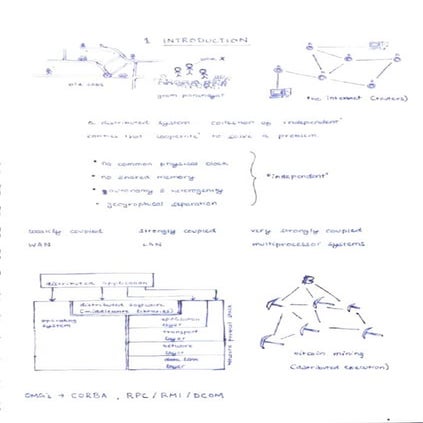 1 INTRODUCTION
"no internet (routers)
a distributed system collection of "independent"
entities that cooperate to solve a problem.
• no common physical clock
• no shared memory
• autonomy & heterogeneity
• geographical separation
"independent"
weakly coupled strongly coupled very strongly coupled
WAN LAN multiprocessor systems
distributed application
distributed software
(middleware libraries)
operating
system
application
layer
transport
layer
network
layer
data link
layer
network protocol stack
bitcoin mining
(distributed execution)
→ CORBA, RPC/RMI/DCOM